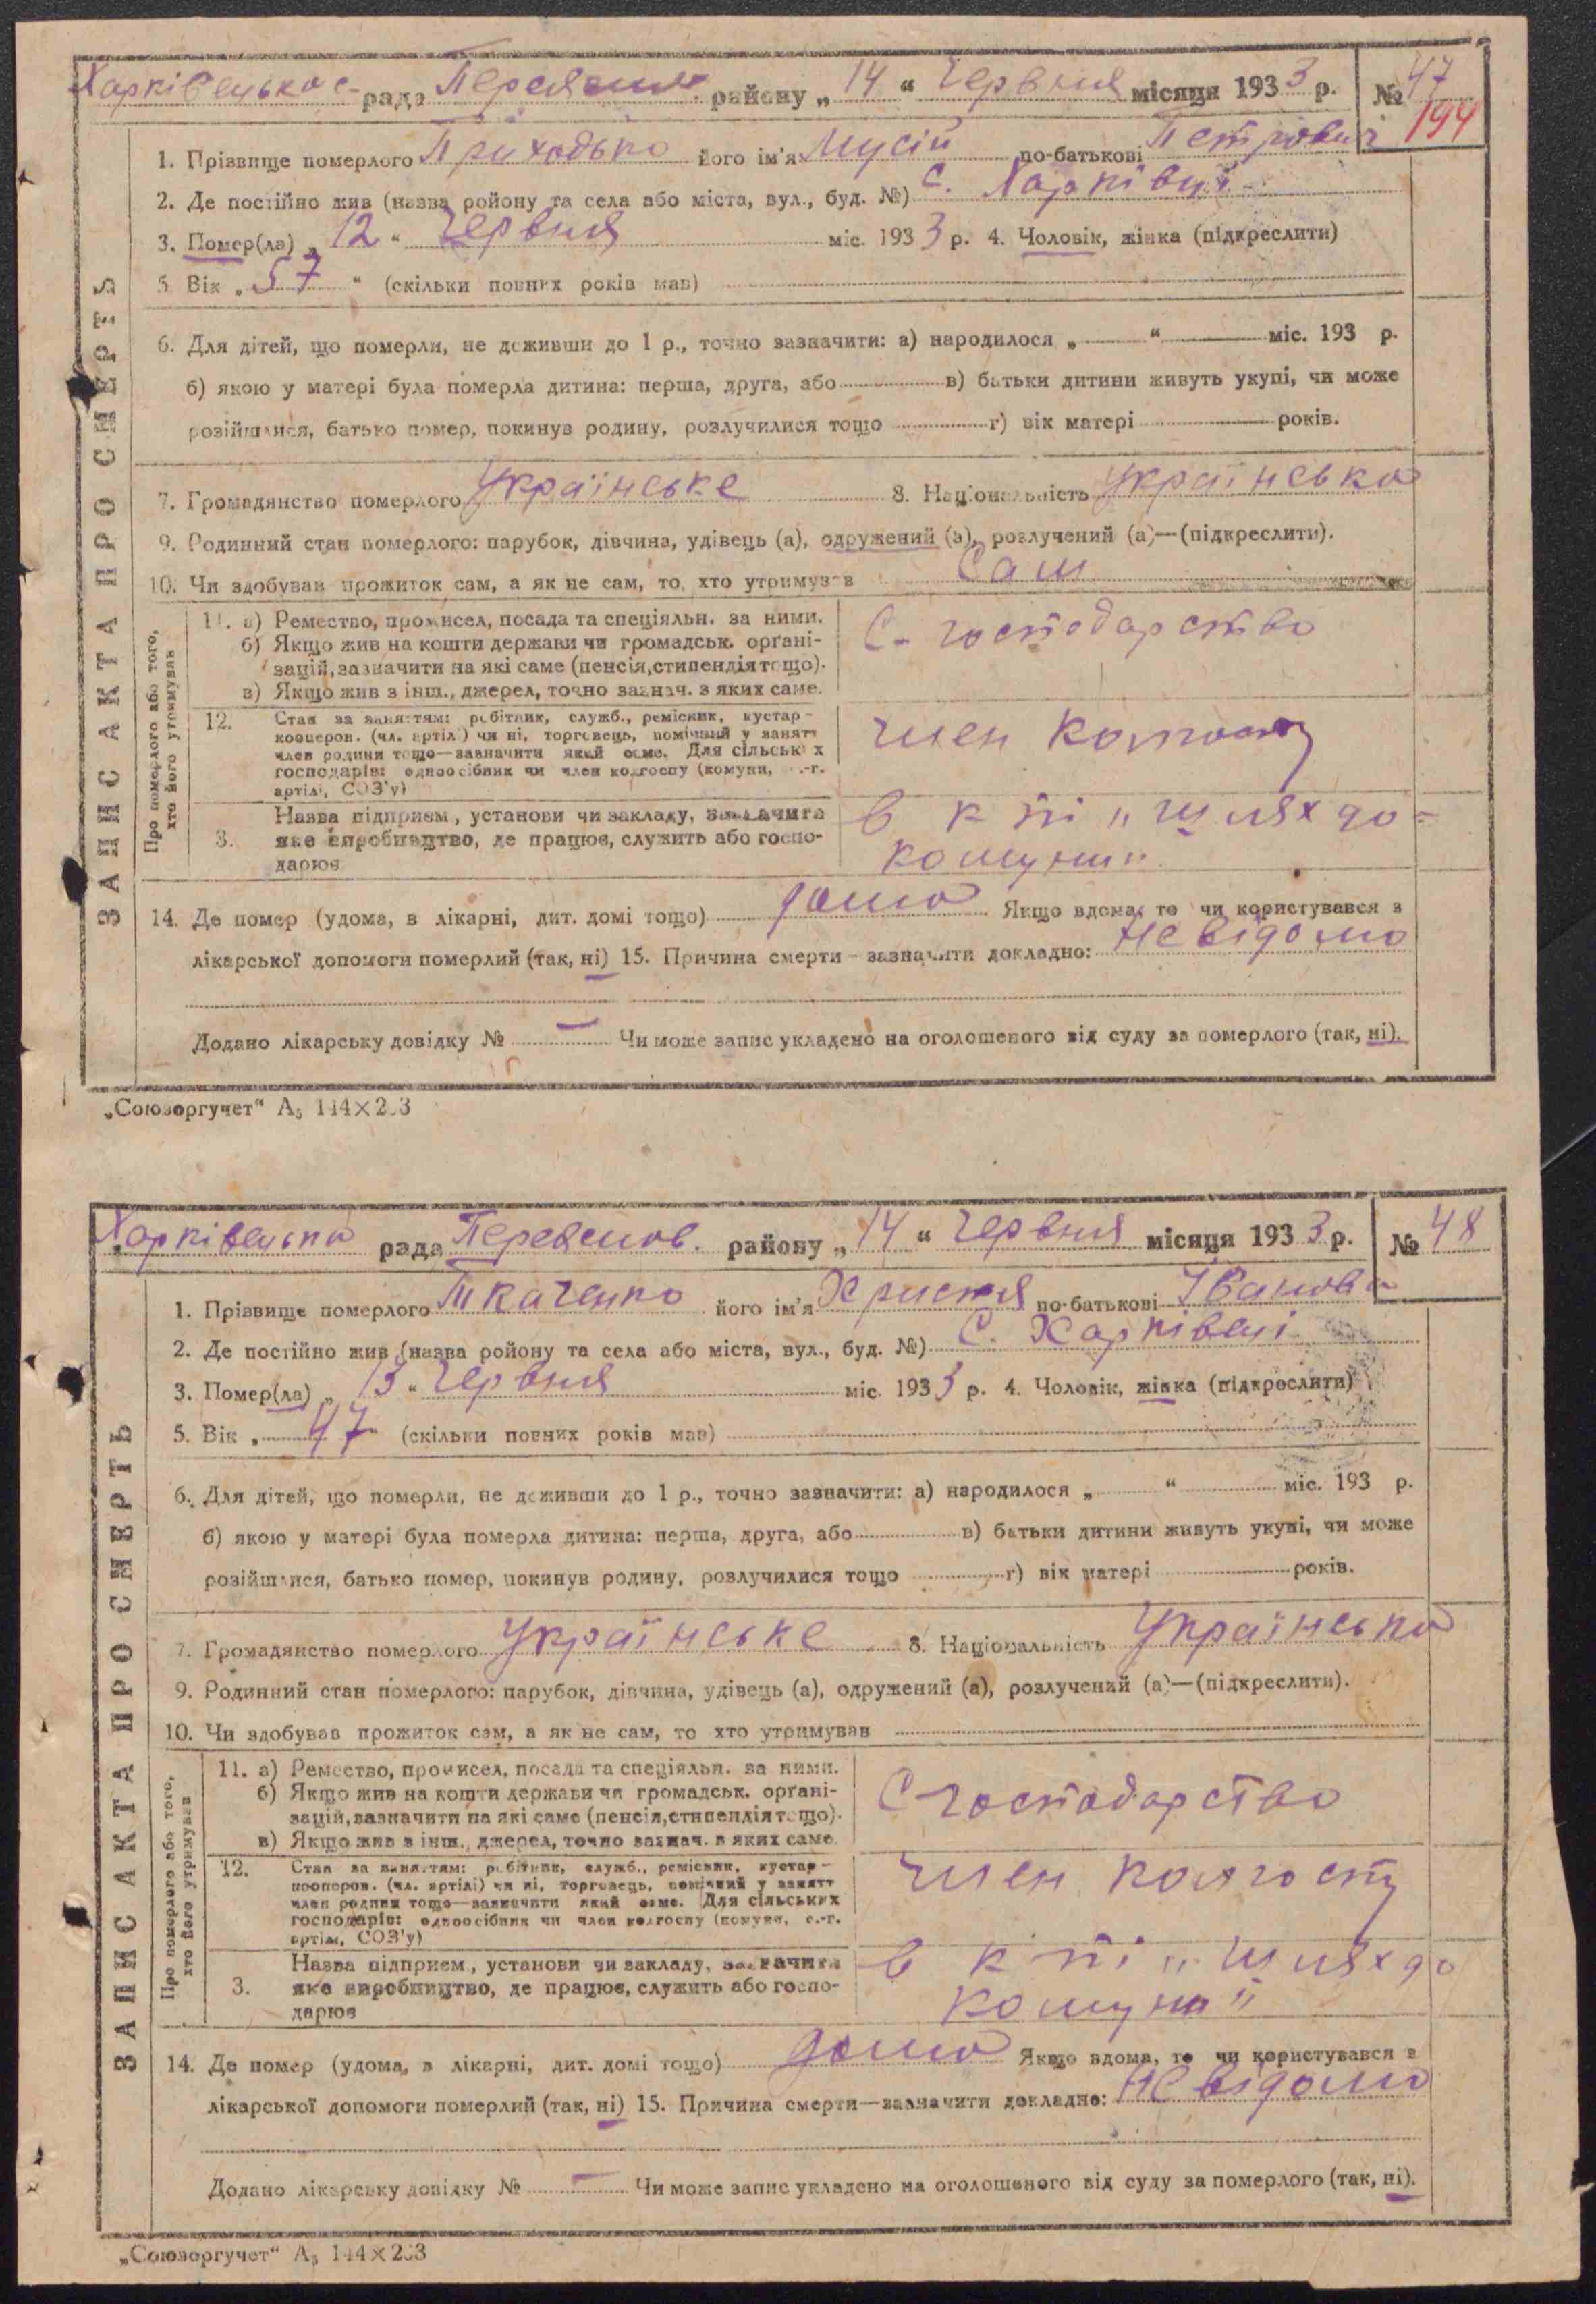 Харківецька рада Переяслив. району „ 14 “ Червня місяця 1933 р. № 47
194
ЗАПИС АКТА ПРО СМЕРТЬ
1. Прізвище померлого Приходько його ім'я Мусій по-батькові Петрович
2. Де постійно жив (назва району та села або міста, вул., буд. №) с. Харківці
3. Помер(ла) „ 12 “ Червня міс. 1933 р. 4. Чоловік, жінка (підкреслити)
5. Вік „ 57 “ (скільки повних років мав)
6. Для дітей, що померли, не доживши до 1 р., точно зазначити: а) народилося „ “ міс. 193 р.
б) якою у матері була померла дитина: перша, друга, або в) батьки дитини живуть укупі, чи може
розійшлися, батько помер, покинув родину, розлучилися тощо г) вік матері років.
7. Громадянство померлого Українське 8. Національність Українська
9. Родинний стан померлого: парубок, дівчина, удівець (а), одружений (а), розлучений (а)—(підкреслити).
10. Чи здобував прожиток сам, а як не сам, то хто утримував Сам
Про померлого або того,
хто його утримував
11. а) Ремество, промисел, посада та спеціяльн. за ними.
б) Якщо жив на кошти держави чи громадськ. орґані-
зацій, зазначити на які саме (пенсія, стипендія тощо).
в) Якщо жив з інш., джерел, точно зазнач. з яких саме.
С-господарство
12. Стан за заняттям: робітник, служб., ремісник, кустар-
кооперов. (чл. артілі) чи ні, торговець, помічний у занятт
член родини тощо—зазначити який саме. Для сільських
господарів: одноосібник чи член колгоспу (комуни, с.-г.
артілі, СОЗ'у)
член
3. Назва підприєм., установи чи закладу, зазначити
яке виробництво, де працює, служить або госпо-
дарює
в к ті „Шлях до-
комуни"
14. Де помер (удома, в лікарні, дит. домі тощо) дома Якщо вдома, то чи користувався з
лікарської допомоги померлий (так, ні) 15. Причина смерти — зазначити докладно: Невідомо
Додано лікарську довідку № — Чи може запис укладено на оголошеного від суду за померлого (так, ні).
„Союзоргучет“ А₅ 144×203
Харківецька рада Переяслов. району „ 14 “ Червня місяця 1933 р. № 48
ЗАПИС АКТА ПРО СМЕРТЬ
1. Прізвище померлого Ткаченко його ім'я Христя по-батькові Іванова
2. Де постійно жив (назва району та села або міста, вул., буд. №) С. Харківці
3. Помер(ла) „ 13 “ Червня міс. 1933 р. 4. Чоловік, жінка (підкреслити)
5. Вік „ 47 “ (скільки повних років мав)
6. Для дітей, що померли, не доживши до 1 р., точно зазначити: а) народилося „ “ міс. 193 р.
б) якою у матері була померла дитина: перша, друга, або в) батьки дитини живуть укупі, чи може
розійшлися, батько помер, покинув родину, розлучилися тощо г) вік матері років.
7. Громадянство померлого Українське 8. Національність Українська
9. Родинний стан померлого: парубок, дівчина, удівець (а), одружений (а), розлучений (а)—(підкреслити).
10. Чи здобував прожиток сам, а як не сам, то хто утримував
Про померлого або того,
хто його утримував
11. а) Ремество, промисел, посада та спеціяльн. за ними.
б) Якщо жив на кошти держави чи громадськ. орґані-
зацій, зазначити на які саме (пенсія, стипендія тощо).
в) Якщо жив з інш., джерел, точно зазнач. з яких саме
С-господарство
12. Стан за заняттям: робітник, служб., ремісник, кустар-
кооперов. (чл. артілі) чи ні, торговець, помічний у занятт
член родини тощо—зазначити який саме. Для сільських
господарів: одноосібник чи член колгоспу (комуни, с.-г.
артілі, СОЗ'у)
член колгоспу
3. Назва підприєм., установи чи закладу, зазначити
яке виробництво, де працює, служить або госпо-
дарює
в к ті „Шлях до
комуни"
14. Де помер (удома, в лікарні, дит. домі тощо) дома Якщо вдома, то чи користувався з
лікарської допомоги померлий (так, ні) 15. Причина смерти—зазначити докладно: Невідомо
Додано лікарську довідку № — Чи може запис укладено на оголошеного від суду за померлого (так, ні).
„Союзоргучет“ А₅ 144×203